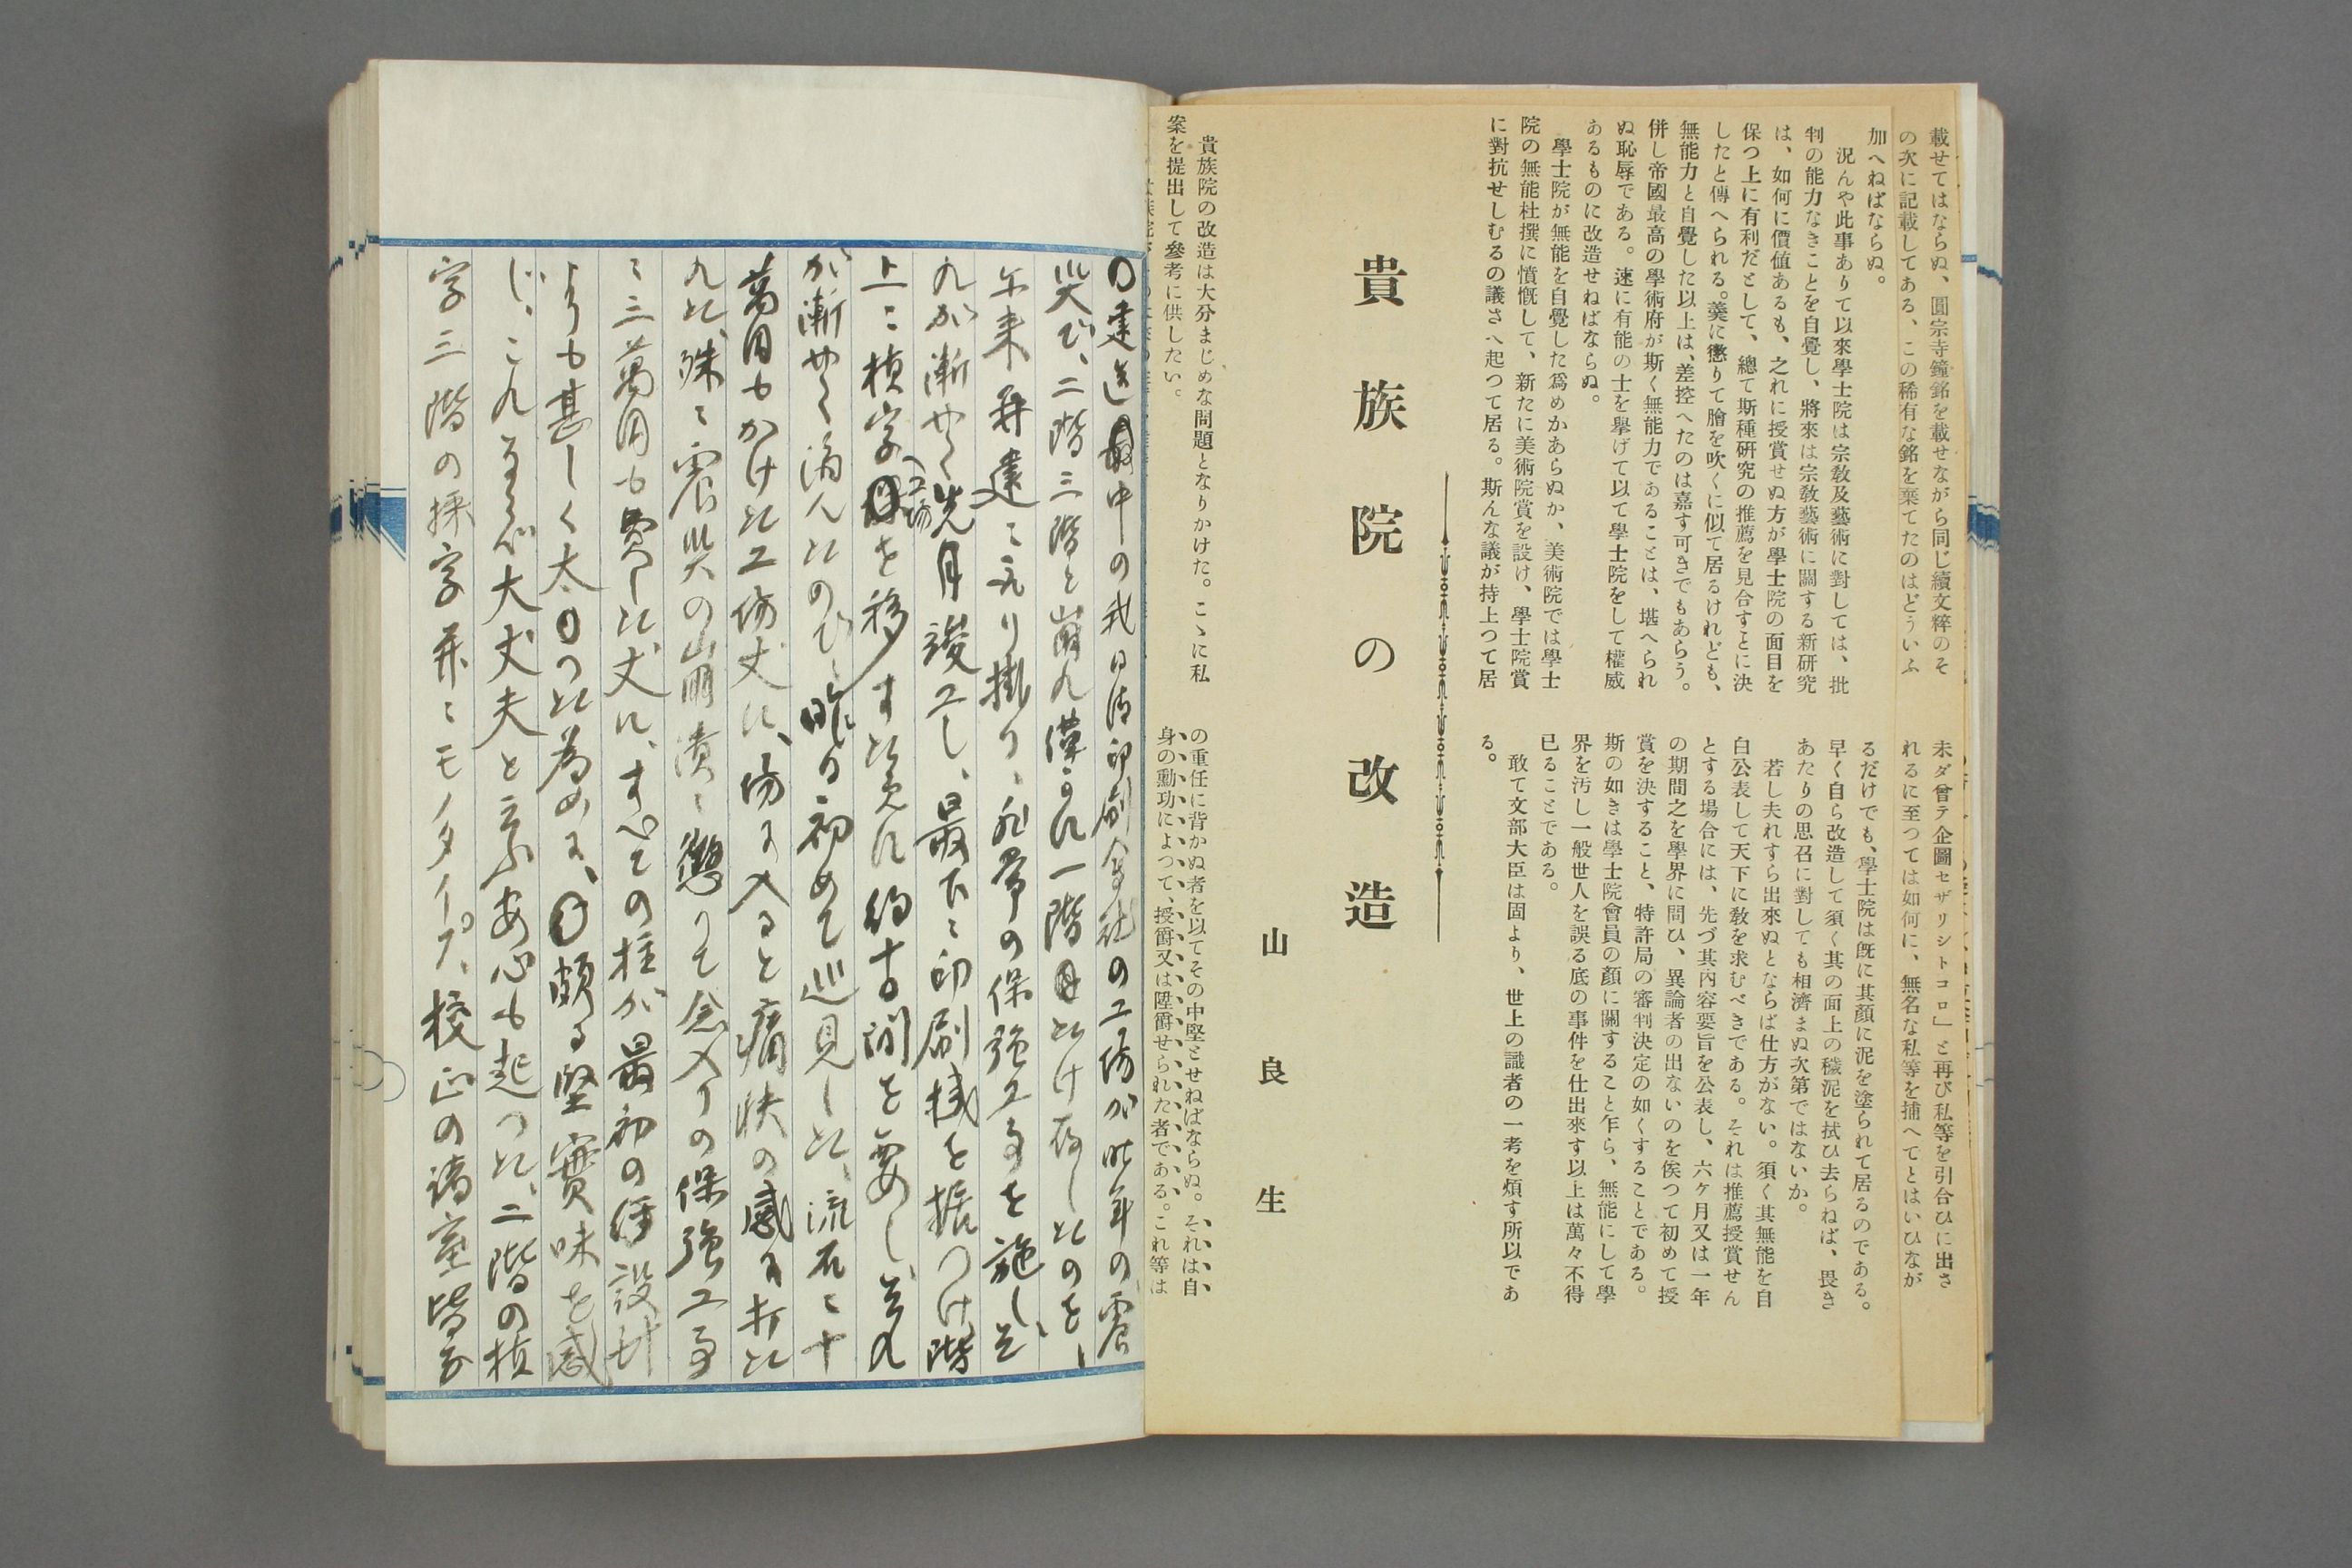 載せてはならぬ、圓宗寺鐘銘を載せながら同じ續文粹のそ
の次に記載してある、この稀有な銘を棄てたのはどういふ
加へねばならぬ。
況んや此事ありて以來學士院は宗敎及藝術に對しては、批
判の能力なきことを自覺し、將來は宗敎藝術に關する新研究
は、如何に價値あるも、之れに授賞せぬ方が學士院の面目を
保つ上に有利だとして、總て斯種研究の推薦を見合すとに決
したと傳へられる。羹に懲りて膾を吹くに似て居るけれども、
無能力と自覺した以上は、差控へたのは嘉す可きでもあらう。
併し帝國最高の學術府が斯く無能力であることは、堪へられ
ぬ恥辱である。速に有能の士を擧げて以て學士院をして權威
あるものに改造せねばならぬ。
學士院が無能を自覺した爲めかあらぬか、美術院では學士
院の無能杜撰に憤慨して、新たに美術院賞を設け、學士院賞
に對抗せしむるの議さへ起つて居る。斯んな議が持上つて居
未ダ曾テ企圖セザリシトコロ」と再び私等を引合ひに出さ
れるに至つては如何に、無名な私等を捕へてとはいひなが
るだけでも、學士院は旣に其顏に泥を塗られて居るのである。
早く自ら改造して須く其の面上の穢泥を拭ひ去らねば、畏き
あたりの思召に對しても相濟まぬ次第ではないか。
若し夫れすら出來ぬとならば仕方がない。須く其無能を自
白公表して天下に敎を求むべきである。それは推薦授賞せん
とする場合には、先づ其內容要旨を公表し、六ケ月又は一年
の期間之を學界に問ひ、異論者の出ないのを俟つて初めて授
賞を決すること、特許局の審判決定の如くすることである。
斯の如きは學士院會員の顏に關すること乍ら、無能にして學
界を汚し一般世人を誤る底の事件を仕出來す以上は萬々不得
已ることである。
敢て文部大臣は固より、世上の識者の一考を煩す所以であ
る。
貴族院の改造
山良生
貴族院の改造は大分まじめな問題となりかけた。こゝに私
案を提出して參考に供したい。
の重任に背かぬ者を以てその中堅とせねばならぬ。それは自
身の勳功によつて、授爵又は陞爵せられた者である。これ等は
建造中の我日淸印刷會社の工場が昨年の震
災で、二階三階と崩れ僅かに一階だけ存したのを、
爾來再建に取り掛り、非常の保強工事を施し、そ
れが漸やく先月竣工し、最下に印刷機を据つけ階
上に植字工場を移す筈に約十日間を要し、それ
が漸やく濟んだので、昨日初めて巡見した、流石に十
萬円もかけた工場丈に、場に入ると痛快の感に打た
れた、殊に震災の崩潰に懲りて念入りの保強工事
に三萬円も費した丈に、すべての柱が最初の設計
よりも甚しく太つた為めに、頗る堅實味を感
じ、これならば大丈夫と云ふ安心も起つた、二階の植
字三階の採字幷にモノタイプ、校正の諸室皆な